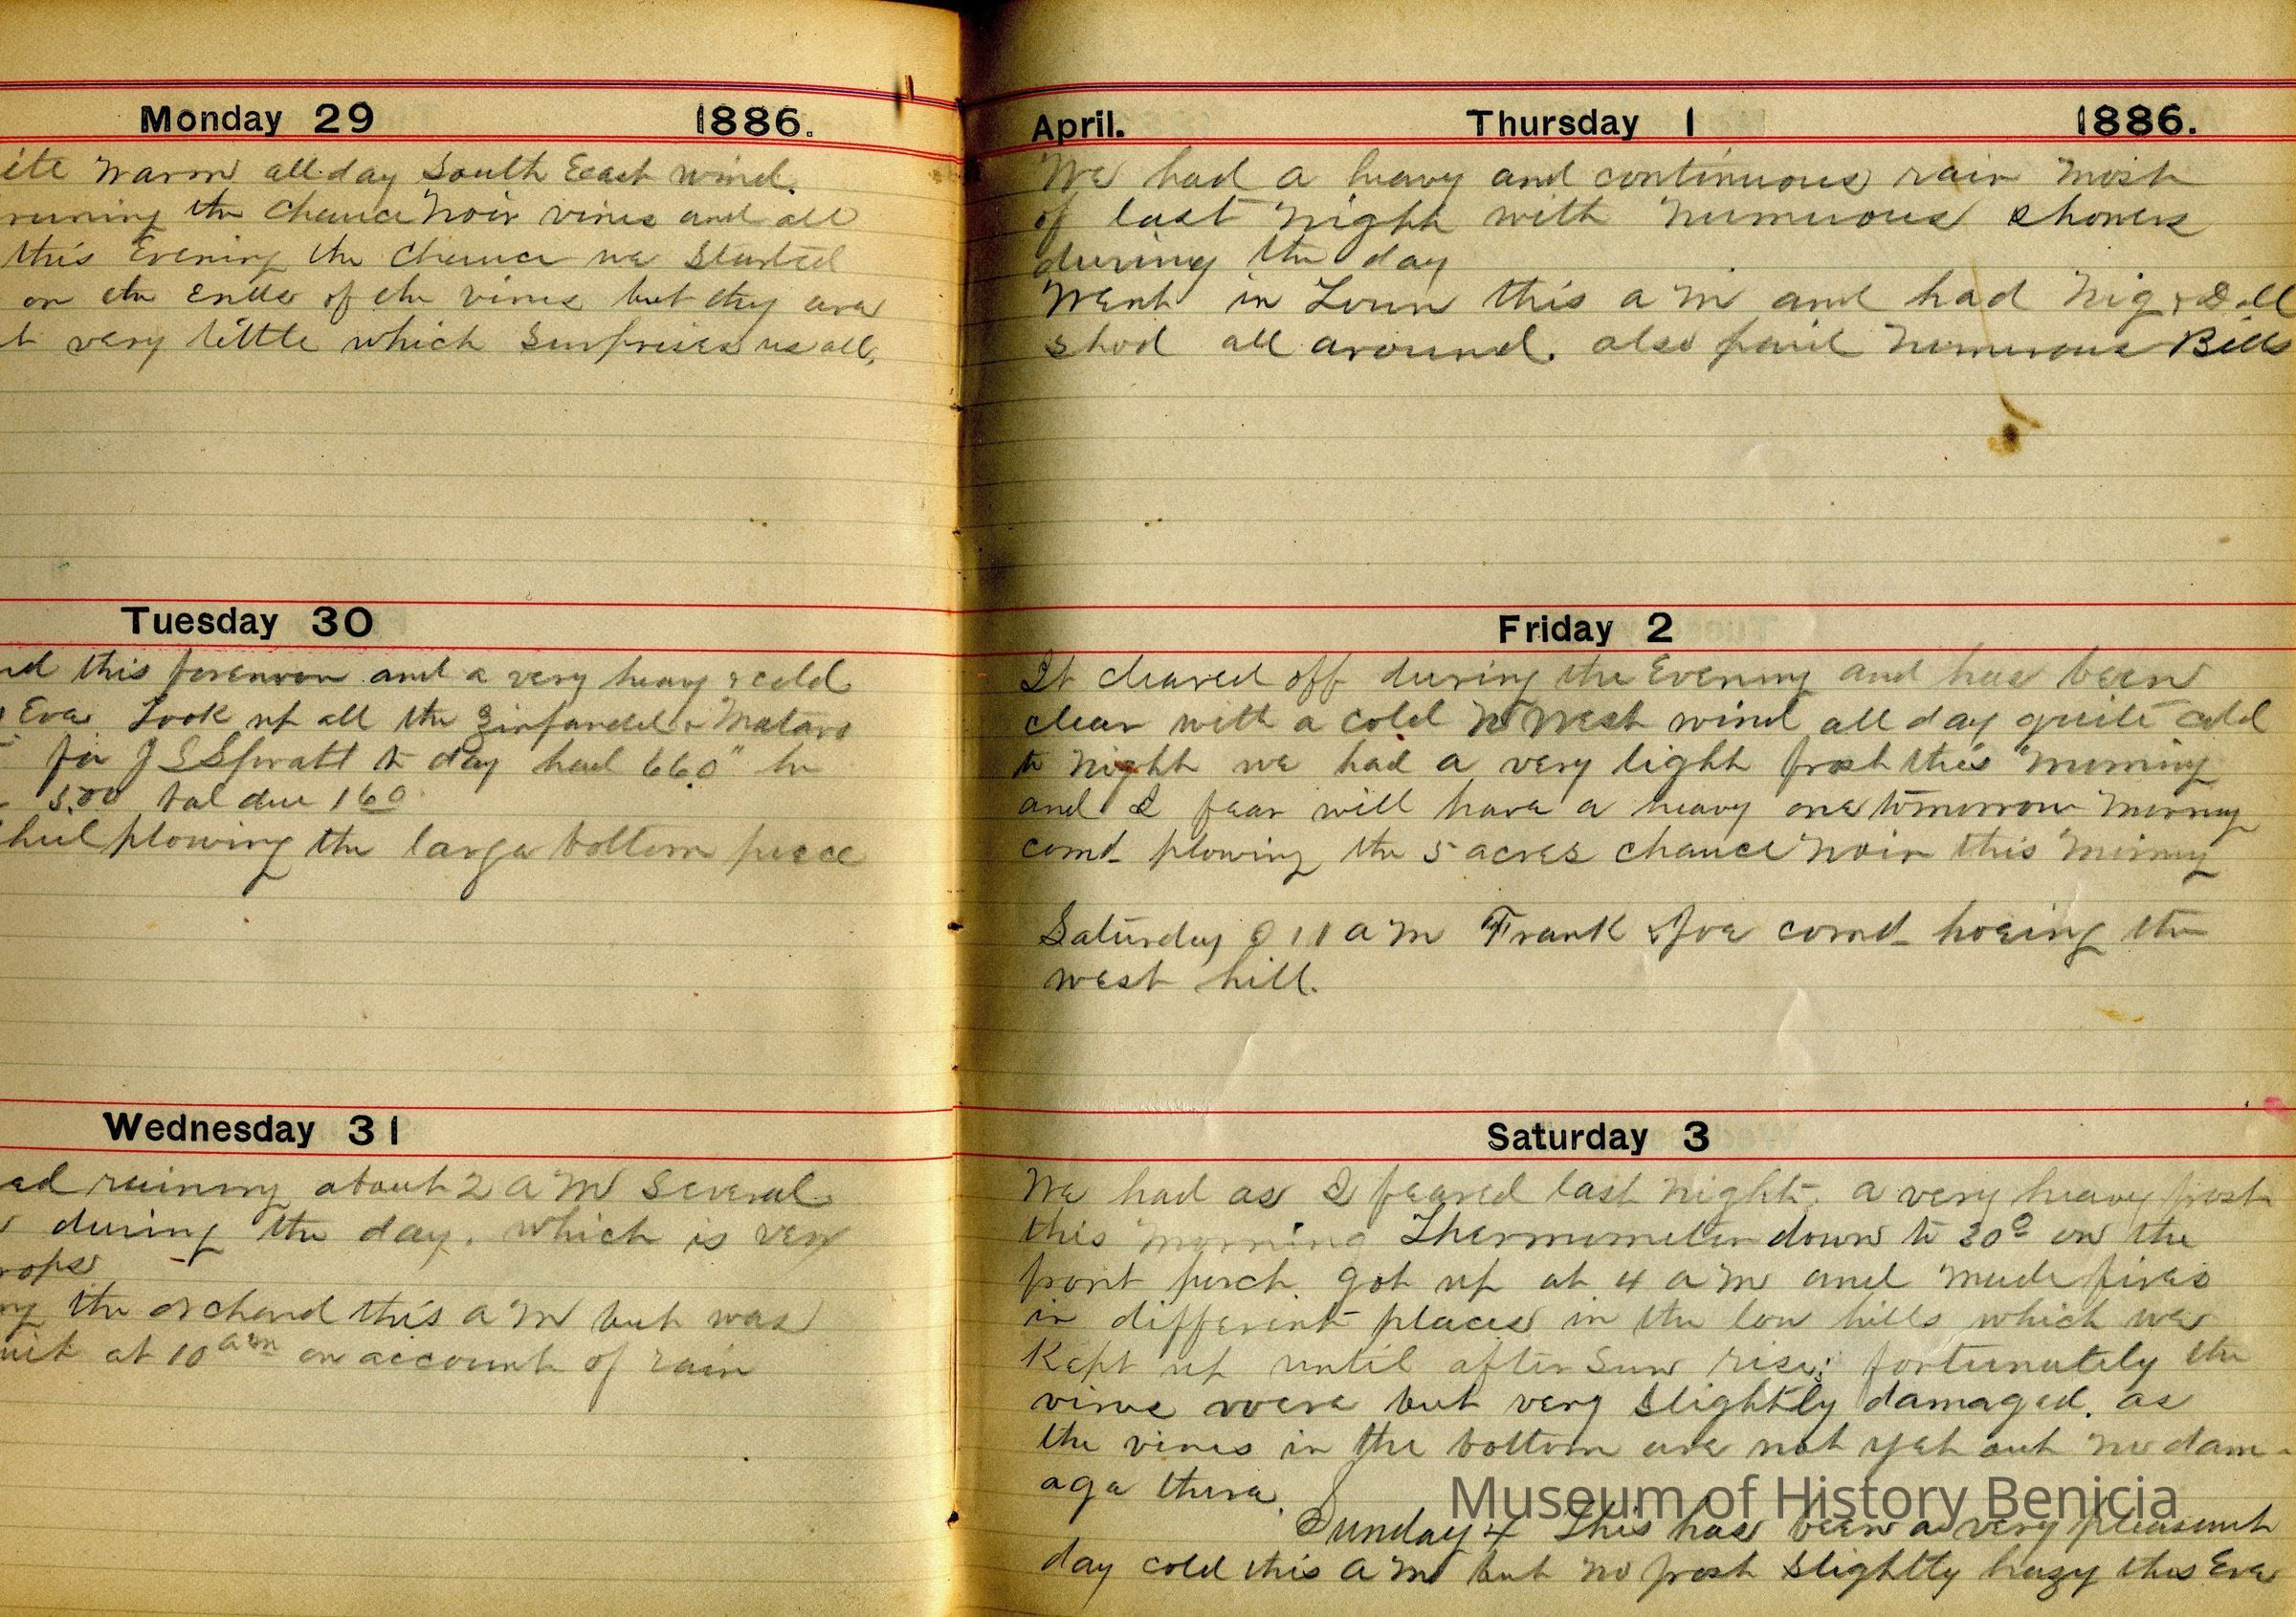 Monday 29 1886.
ite warm all day South East wind.
runing the Chauce Noir vines and all
this Evening the Chauce we Started
on the Ends of the vines but they are
t very little which Surprises us all,
Tuesday 30
nd this forenoon and a very heavy & cold
Eve Took up all the Zinfandel & Mataro
for J S Spratt to day had 660" he
5.00 bal due 160
plowing the large bottom peece
Wednesday 31
ed raining about 2 A M Several
during the day. which is very
rops
ng the orchard this A M but was
at 10 am on account of rain
April. Thursday 1 1886.
We had a heavy and continuous rain most
of last night with numerous showers
during the day
Went in Town this A M and had Nig & Doll
shod all around. also paid numerous Bills
Friday 2
It cleared off during the Evening and has been
clear with a cold N West wind all day quite cold
to night we had a very light frost this morning
and I fear will have a heavy one tomorrow morning
comd plowing the 5 acres chauce Noir this morning
Saturday 11 A M Frank & Joe comd hoeing the
west hill.
Saturday 3
We had as I feared last night. a very heavy frost
this morning Thermometer down to 30° on the
front porch. got up at 4 A M and made fires
in different places in the low hills which we
Kept up until after Sun rise; fortunately the
vines were but very slightly damaged. as
the vines in the bottom are not yet out no dam-
age there.
Museum of History Benicia
Sunday 4 This has been a very pleasant
day cold this A M but no frost slightly hazy this Eve